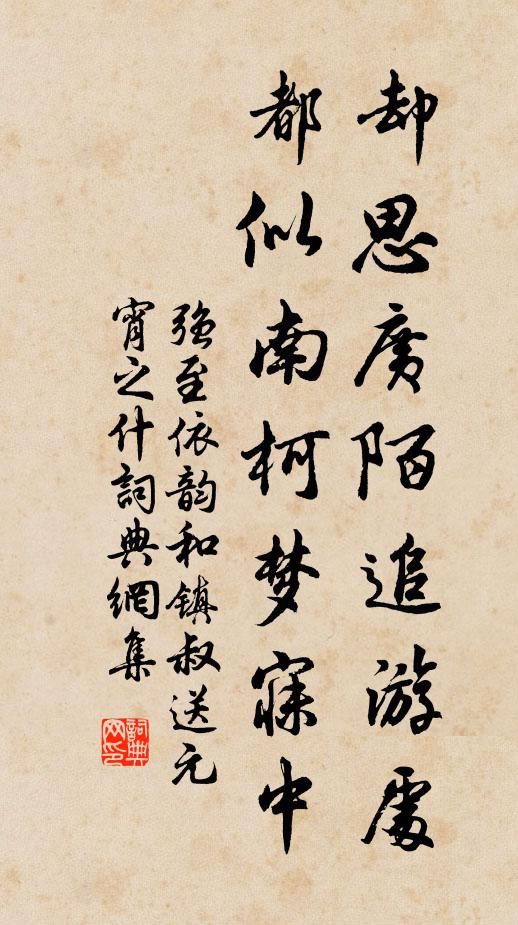 却思广陌追游處
都似南柯梦寐中
强至依韵和镇叔送元
宵之什詞典網集
詞典网印